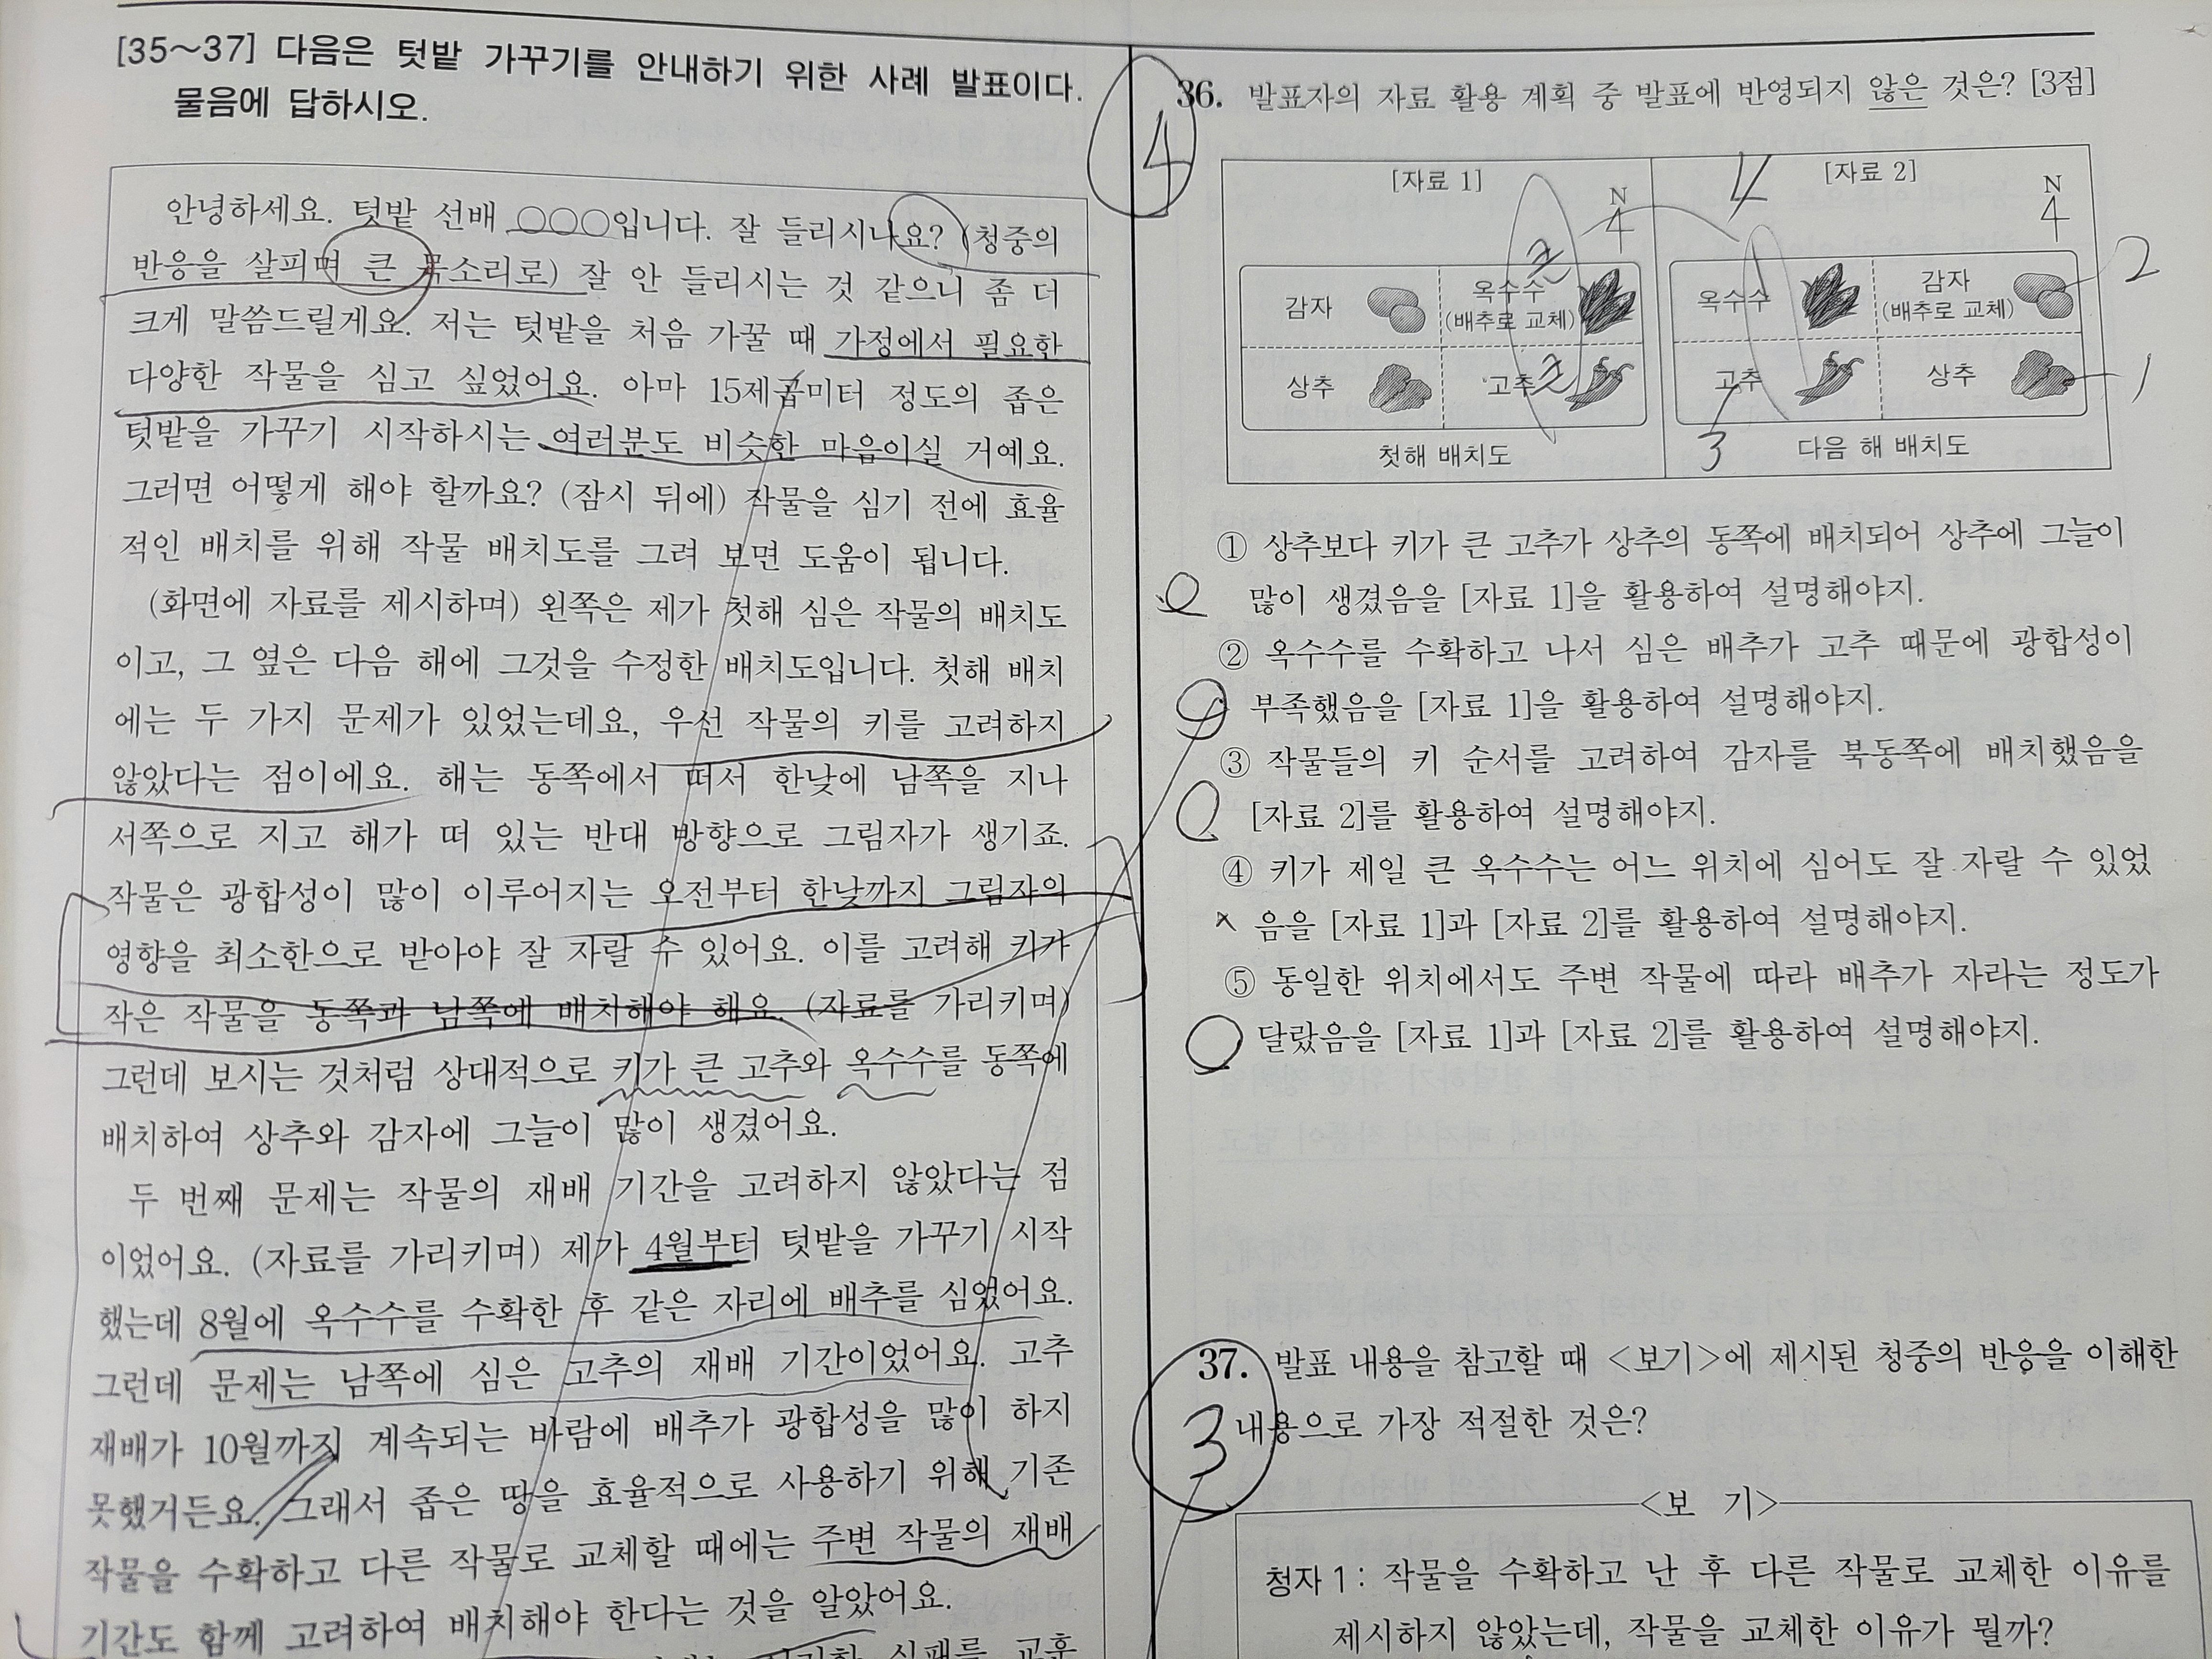 [35～37] 다음은 텃밭 가꾸기를 안내하기 위한 사례 발표이다.
물음에 답하시오.
안녕하세요. 텃밭 선배 ○○○입니다. 잘 들리시나요? (청중의
반응을 살피며 큰 목소리로) 잘 안 들리시는 것 같으니 좀 더
크게 말씀드릴게요. 저는 텃밭을 처음 가꿀 때 가정에서 필요한
다양한 작물을 심고 싶었어요. 아마 15제곱미터 정도의 좁은
텃밭을 가꾸기 시작하시는 여러분도 비슷한 마음이실 거예요.
그러면 어떻게 해야 할까요? (잠시 뒤에) 작물을 심기 전에 효율
적인 배치를 위해 작물 배치도를 그려 보면 도움이 됩니다.
(화면에 자료를 제시하며) 왼쪽은 제가 첫해 심은 작물의 배치도
이고, 그 옆은 다음 해에 그것을 수정한 배치도입니다. 첫해 배치
에는 두 가지 문제가 있었는데요, 우선 작물의 키를 고려하지
않았다는 점이에요. 해는 동쪽에서 떠서 한낮에 남쪽을 지나
서쪽으로 지고 해가 떠 있는 반대 방향으로 그림자가 생기죠.
작물은 광합성이 많이 이루어지는 오전부터 한낮까지 그림자의
영향을 최소한으로 받아야 잘 자랄 수 있어요. 이를 고려해 키가
작은 작물을 동쪽과 남쪽에 배치해야 해요. (자료를 가리키며)
그런데 보시는 것처럼 상대적으로 키가 큰 고추와 옥수수를 동쪽에
배치하여 상추와 감자에 그늘이 많이 생겼어요.
두 번째 문제는 작물의 재배 기간을 고려하지 않았다는 점
이었어요. (자료를 가리키며) 제가 4월부터 텃밭을 가꾸기 시작
했는데 8월에 옥수수를 수확한 후 같은 자리에 배추를 심었어요.
그런데 문제는 남쪽에 심은 고추의 재배 기간이었어요. 고추
재배가 10월까지 계속되는 바람에 배추가 광합성을 많이 하지
못했거든요. 그래서 좁은 땅을 효율적으로 사용하기 위해 기존
작물을 수확하고 다른 작물로 교체할 때에는 주변 작물의 재배
기간도 함께 고려하여 배치해야 한다는 것을 알았어요.
실패를 교훈
4
36. 발표자의 자료 활용 계획 중 발표에 반영되지 않은 것은? [3점]
[자료 1]
N
4
감자
옥수수
(배추로 교체)
상추
고추
첫해 배치도
[자료 2]
N
4
옥수수
감자
(배추로 교체)
고추
상추
다음 해 배치도
2
1
3
① 상추보다 키가 큰 고추가 상추의 동쪽에 배치되어 상추에 그늘이
많이 생겼음을 [자료 1]을 활용하여 설명해야지.
② 옥수수를 수확하고 나서 심은 배추가 고추 때문에 광합성이
부족했음을 [자료 1]을 활용하여 설명해야지.
③ 작물들의 키 순서를 고려하여 감자를 북동쪽에 배치했음을
[자료 2]를 활용하여 설명해야지.
④ 키가 제일 큰 옥수수는 어느 위치에 심어도 잘 자랄 수 있었
음을 [자료 1]과 [자료 2]를 활용하여 설명해야지.
⑤ 동일한 위치에서도 주변 작물에 따라 배추가 자라는 정도가
달랐음을 [자료 1]과 [자료 2]를 활용하여 설명해야지.
37. 발표 내용을 참고할 때 <보기>에 제시된 청중의 반응을 이해한
3
내용으로 가장 적절한 것은?
<보 기>
청자 1 : 작물을 수확하고 난 후 다른 작물로 교체한 이유를
제시하지 않았는데, 작물을 교체한 이유가 뭘까?